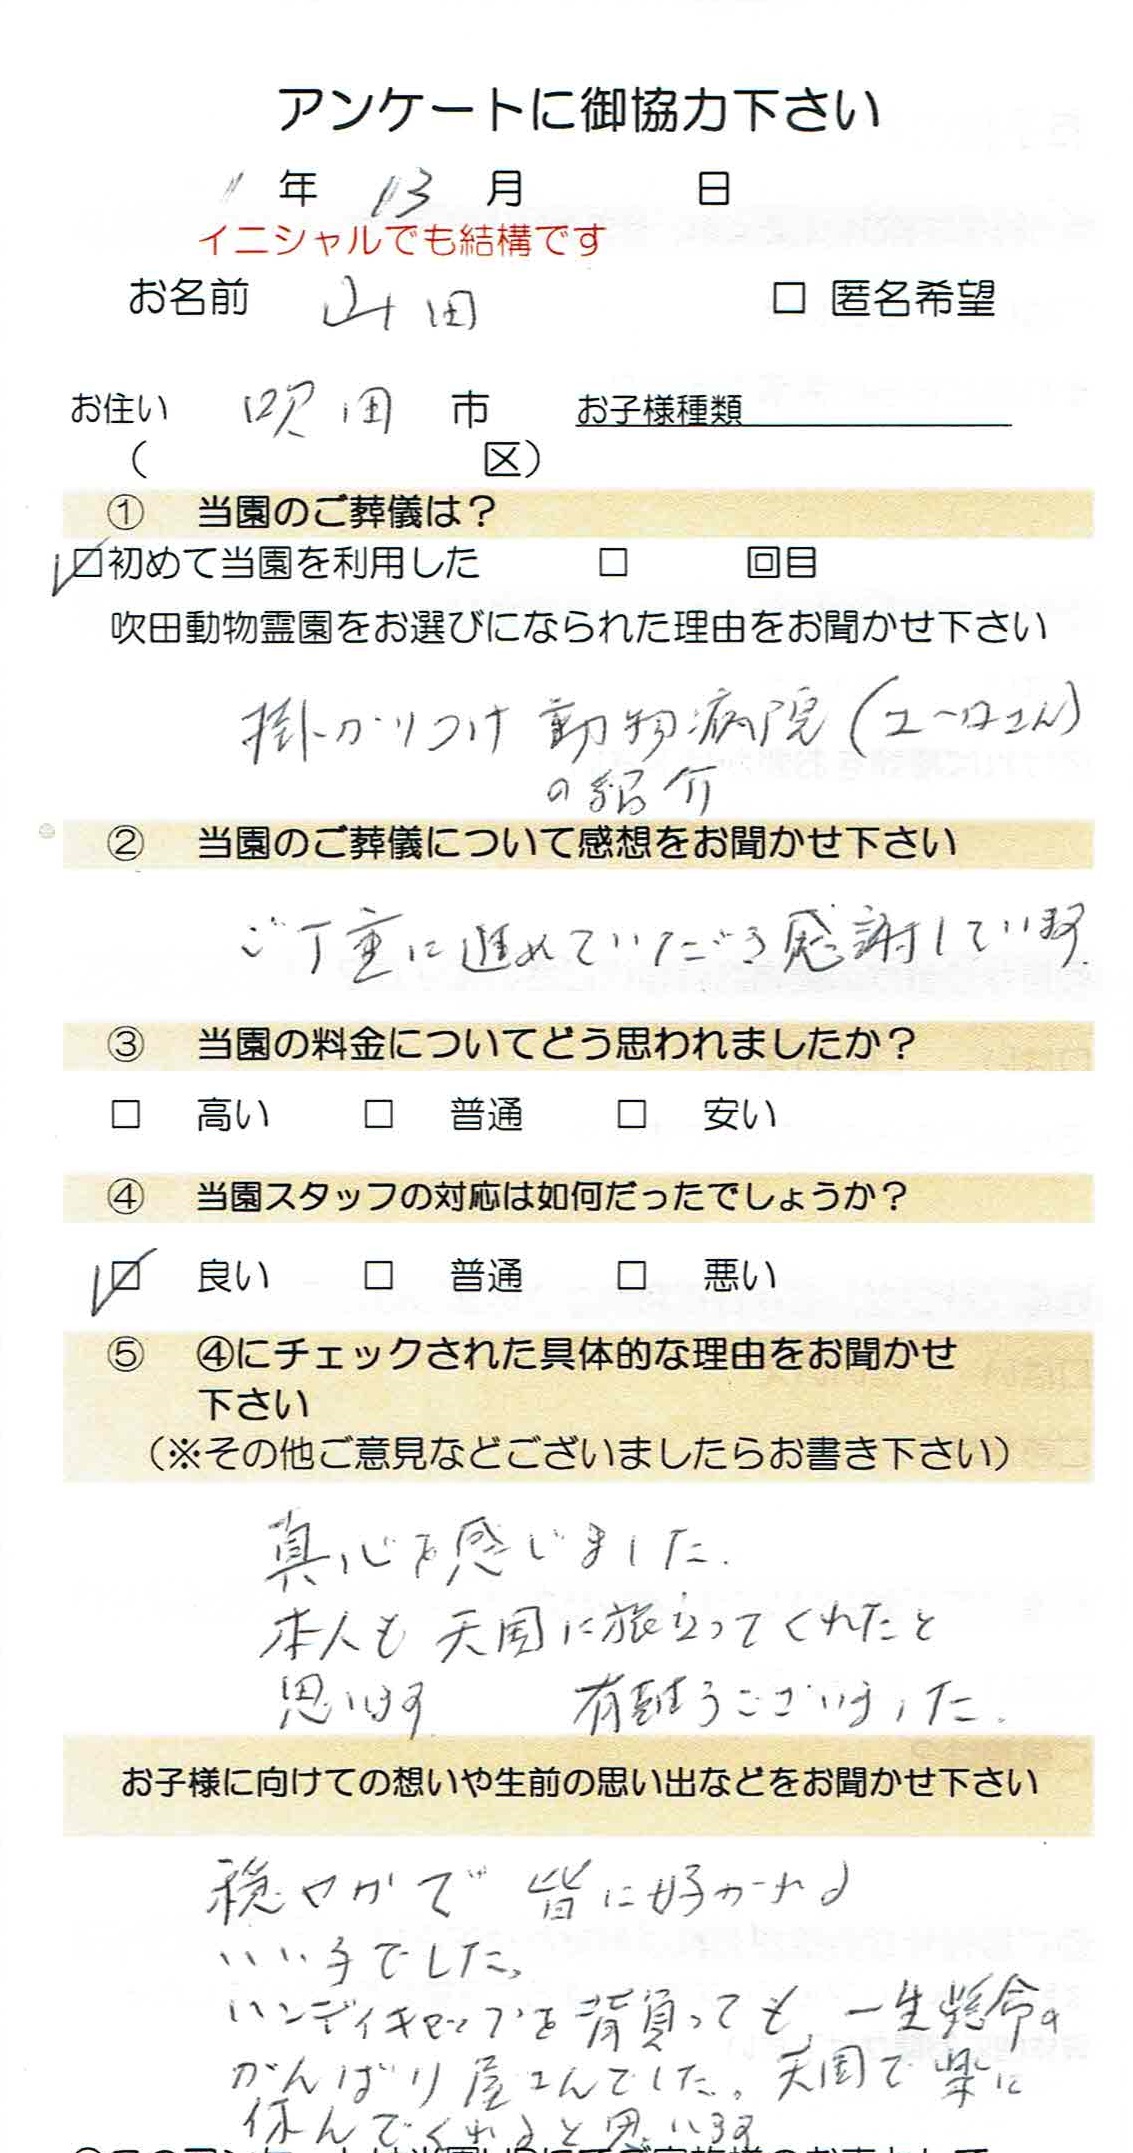 アンケートに御協力下さい
11 年 13 月 日
イニシャルでも結構です
お名前 山田 □ 匿名希望
お住い 吹田 市 お子様種類
( 区)
① 当園のご葬儀は？
☑初めて当園を利用した □ 回目
吹田動物霊園をお選びになられた理由をお聞かせ下さい
掛かりつけ動物病院(ユーロさん)
の紹介
② 当園のご葬儀について感想をお聞かせ下さい
ご丁重に進めていただき感謝しています.
③ 当園の料金についてどう思われましたか？
□ 高い □ 普通 □ 安い
④ 当園スタッフの対応は如何だったでしょうか？
☑ 良い □ 普通 □ 悪い
⑤ ④にチェックされた具体的な理由をお聞かせ
下さい
（※その他ご意見などございましたらお書き下さい）
真心を感じました.
本人も天国に旅立ってくれたと
思います 有難うございました.
お子様に向けての想いや生前の思い出などをお聞かせ下さい
穏やかで 皆に好かれる
いい子でした。
ハンディキャップを背負っても、一生懸命の
がんばり屋さんでした。天国で楽に
休んでくれると思います